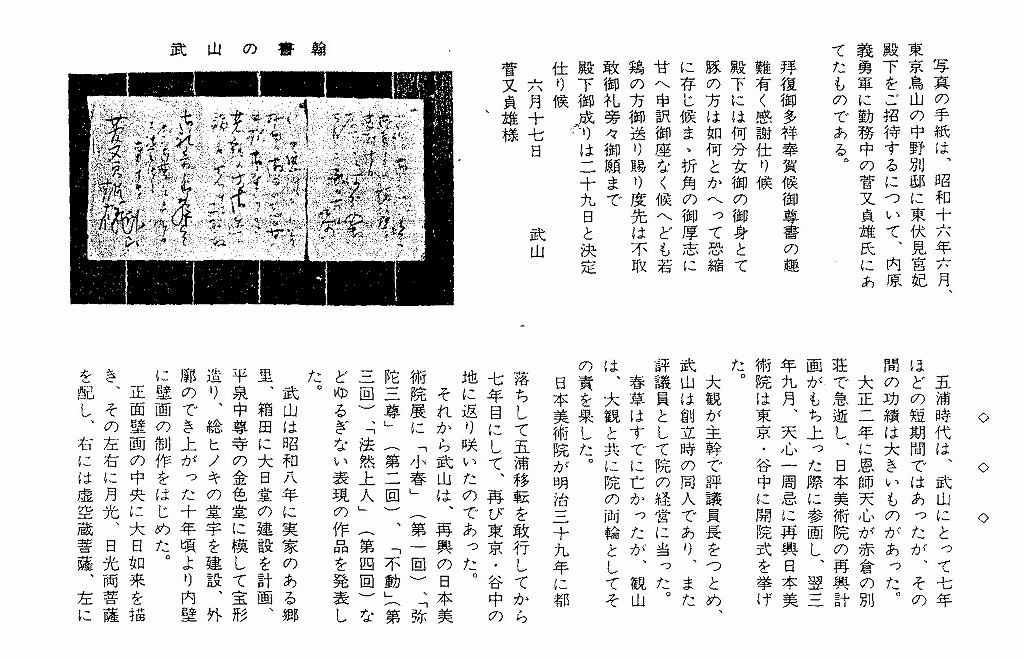 写真の手紙は、昭和十六年六月、
東京烏山の中野別邸に東伏見宮妃
殿下をご招待するについて、内原
義勇軍に勤務中の菅又貞雄氏にあ
てたものである。
拝復御多祥奉賀候御尊書の趣
難有く感謝仕り候
殿下には何分女御の御身とて
豚の方は如何とかへって恐縮
に存じ候まゝ折角の御厚志に
甘へ申訳御座なく候へども若
鶏の方御送り賜り度先は不取
敢御礼旁々御願まで
殿下御成りは二十九日と決定
仕り候
六月十七日　武山
菅又貞雄様
武山の書翰
◇　◇　◇
五浦時代は、武山にとって七年
ほどの短期間ではあったが、その
間の功績は大きいものがあった。
大正二年に恩師天心が赤倉の別
荘で急逝し、日本美術院の再興計
画がもち上った際に参画し、翌三
年九月、天心一周忌に再興日本美
術院は東京・谷中に開院式を挙げ
た。
大観が主幹で評議員長をつとめ、
武山は創立時の同人であり、また
評議員として院の経営に当った。
春草はすでに亡かったが、観山
は、大観と共に院の両輪としてそ
の責を果した。
日本美術院が明治三十九年に都
落ちして五浦移転を敢行してから
七年目にして、再び東京・谷中の
地に返り咲いたのであった。
それから武山は、再興の日本美
術院展に「小春」（第一回）、「弥
陀三尊」（第二回）、「不動」（第
三回）「法然上人」（第四回）な
どゆるぎない表現の作品を発表し
た。
武山は昭和八年に実家のある郷
里、箱田に大日堂の建設を計画、
平泉中尊寺の金色堂に模して宝形
造り、総ヒノキの堂宇を建設、外
廓のでき上がった十年頃より内壁
に壁画の制作をはじめた。
正面壁画の中央に大日如来を描
き、その左右に月光、日光両菩薩
を配し、右には虚空蔵菩薩、左に